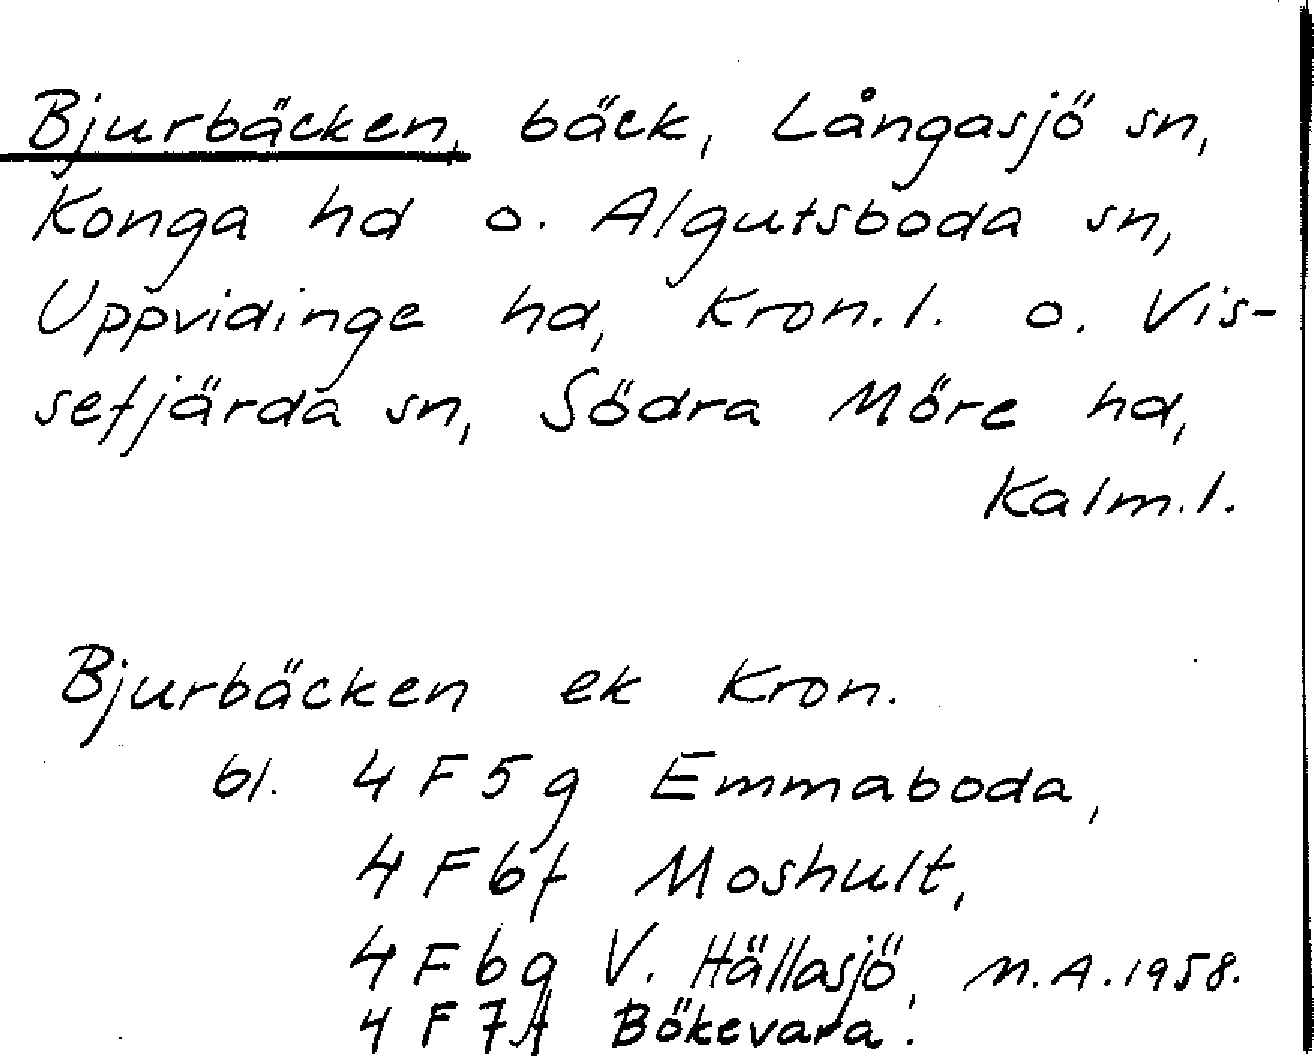 Bjurbäcken, bäck, Långasjö sn,
Konga hd o. Algutsboda sn,
Uppvidinge hd, Kron.l. o. Vis-
sefjärda sn, Södra Möre hd,
Kalm.l.
Bjurbäcken ek Kron.
bl. 4 F 5 g Emmaboda,
4 F 6 f Moshult,
4 F 6 g V. Hällasjö, M.A. 1958.
4 F 7 f Bökevara.